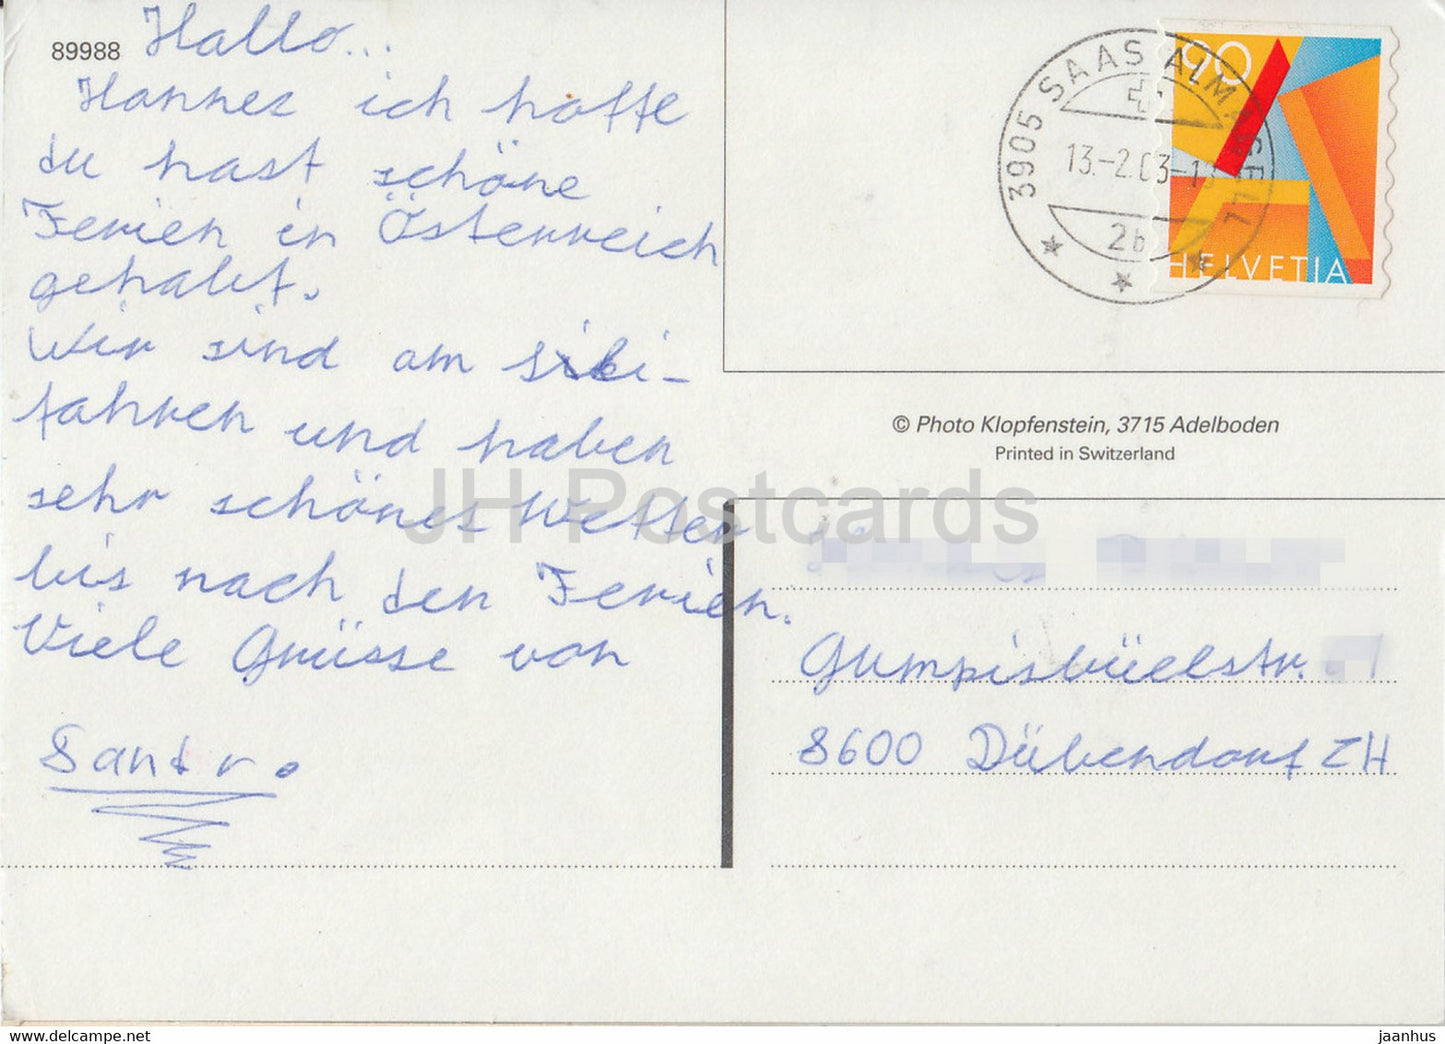 89988
Hallo...
Hannes ich hoffe
du hast schöne
Ferien in Österreich
gehabt.
Wir sind am ski-
fahren und haben
sehr schönes Wetter
bis nach den Ferien.
Viele Grüsse von
Sandro
90
3905 SAAS ALMAGELL
13.-2.03-
2b
HELVETIA
© Photo Klopfenstein, 3715 Adelboden
Printed in Switzerland
JH Postcards
Gumpisbüelstr.
8600 Dübendorf ZH
https://www.delcampe.net
jaanhus